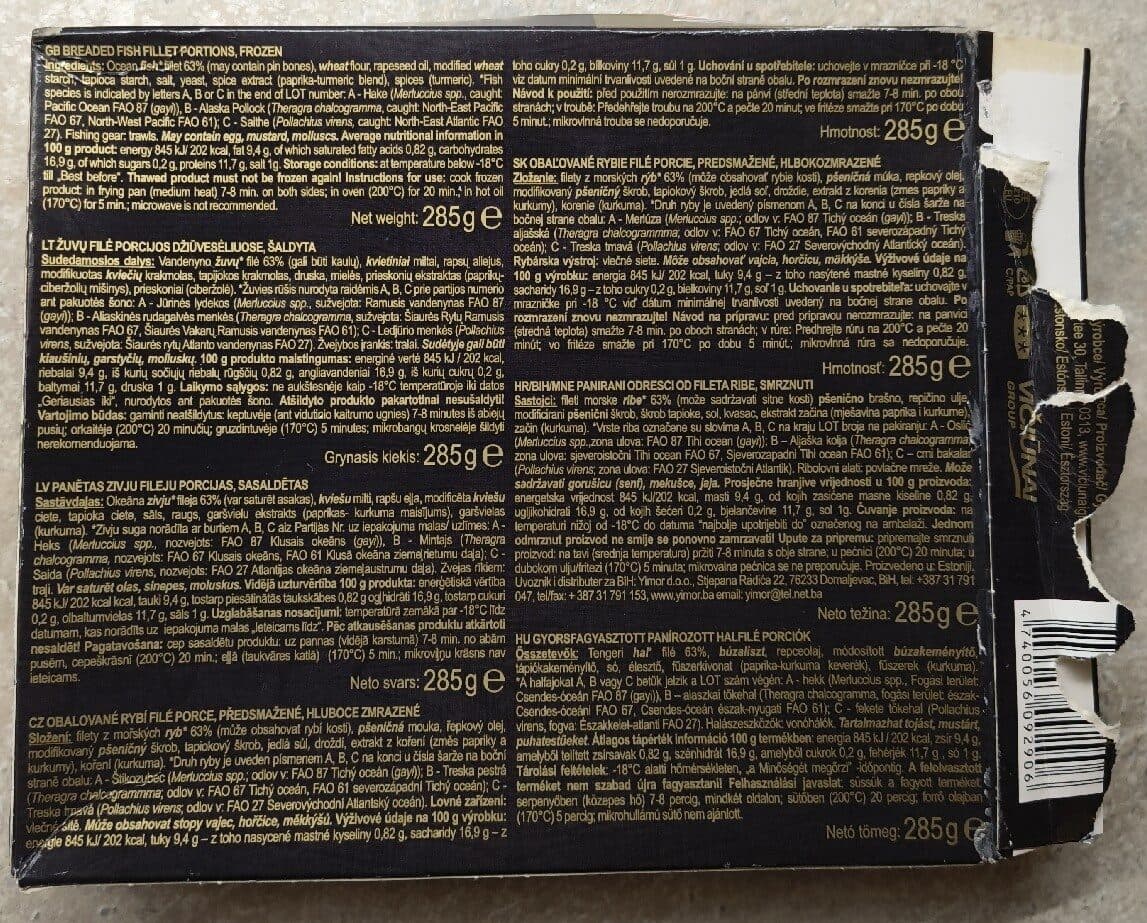 GB BREADED FISH FILLET PORTIONS, FROZEN
Ingredients: Ocean fish* fillet 63% (may contain pin bones), wheat flour, rapeseed oil, modified wheat
starch, tapioca starch, salt, yeast, spice extract (paprika-turmeric blend), spices (turmeric). *Fish
species is indicated by letters A, B or C in the end of LOT number: A - Hake (Merluccius spp., caught:
Pacific Ocean FAO 87 (gayi)), B - Alaska Pollock (Theragra chalcogramma, caught: North-East Pacific
FAO 67, North-West Pacific FAO 61); C - Saithe (Pollachius virens, caught: North-East Atlantic FAO
27). Fishing gear: trawls. May contain egg, mustard, molluscs. Average nutritional information in
100 g product: energy 845 kJ/ 202 kcal, fat 9,4 g, of which saturated fatty acids 0,82 g, carbohydrates
16,9 g, of which sugars 0,2 g, proteins 11,7 g, salt 1g. Storage conditions: at temperature below -18°C
till „Best before". Thawed product must not be frozen again! Instructions for use: cook frozen
product: in frying pan (medium heat) 7-8 min. on both sides; in oven (200°C) for 20 min.; in hot oil
(170°C) for 5 min.; microwave is not recommended.
Net weight: 285g e
LT ŽUVŲ FILĖ PORCIJOS DŽIŪVĖSĖLIUOSE, ŠALDYTA
Sudedamosios dalys: Vandenyno žuvų* filė 63% (gali būti kaulų), kvietiniai miltai, rapsų aliejus,
modifikuotas kviečių krakmolas, tapijokos krakmolas, druska, mielės, prieskonių ekstraktas (paprikų-
ciberžolių mišinys), prieskoniai (ciberžolė). *Žuvies rūšis nurodyta raidėmis A, B, C prie partijos numerio
ant pakuotės šono: A - Jūrinės lydekos (Merluccius spp., sužvejota: Ramusis vandenynas FAO 87
(gayi)); B - Aliaskinės rudagalvės menkės (Theragra chalcogramma, sužvejota: Šiaurės Rytų Ramusis
vandenynas FAO 67, Šiaurės Vakarų Ramusis vandenynas FAO 61); C - Ledjūrio menkės (Pollachius
virens, sužvejota: Šiaurės rytų Atlanto vandenynas FAO 27). Žvejybos įrankis: tralai. Sudėtyje gali būti
kiaušinių, garstyčių, moliuskų. 100 g produkto maistingumas: energinė vertė 845 kJ / 202 kcal,
riebalai 9,4 g, iš kurių sočiųjų riebalų rūgščių 0,82 g, angliavandeniai 16,9 g, iš kurių cukrų 0,2 g,
baltymai 11,7 g, druska 1 g. Laikymo sąlygos: ne aukštesnėje kaip -18°C temperatūroje iki datos
„Geriausias iki", nurodytos ant pakuotės šono. Atšildyto produkto pakartotinai nesušaldyti!
Vartojimo būdas: gaminti neatšildytus: keptuvėje (ant vidutinio kaitrumo ugnies) 7-8 minutes iš abiejų
pusių; orkaitėje (200°C) 20 minučių; gruzdintuvėje (170°C) 5 minutes; mikrobangų krosnelėje šildyti
nerekomenduojama.
Grynasis kiekis: 285g e
LV PANĒTAS ZIVJU FILEJU PORCIJAS, SASALDĒTAS
Sastāvdaļas: Okeāna zivju* fileja 63% (var saturēt asakas), kviešu milti, rapšu eļļa, modificēta kviešu
ciete, tapioka ciete, sāls, raugs, garšvielu ekstrakts (paprikas- kurkuma maisījums), garšvielas
(kurkuma). *Zivju suga norādīta ar burtiem A, B, C aiz Partijas Nr. uz iepakojuma malas/ uzlīmes: A -
Heks (Merluccius spp., nozvejots: FAO 87 Klusais okeāns (gayi)), B - Mintajs (Theragra
chalcogramma, nozvejots: FAO 67 Klusais okeāns, FAO 61 Klusā okeāna ziemeļrietumu daļa); C -
Saida (Pollachius virens, nozvejots: FAO 27 Atlantijas okeāna ziemeļaustrumu daļa). Zvejas rīkiem:
traļi. Var saturēt olas, sinepes, moluskus. Vidējā uzturvērtība 100 g produkta: enerģētiskā vērtība
845 kJ/ 202 kcal kcal, tauki 9,4 g, tostarp piesātinātās taukskābes 0,82 g ogļhidrāti 16,9 g, tostarp cukuri
0,2 g, olbaltumvielas 11,7 g, sāls 1 g. Uzglabāšanas nosacījumi: temperatūrā zemākā par -18°C līdz
datumam, kas norādīts uz iepakojuma malas „Ieteicams līdz". Pēc atkausēšanas produktu atkārtoti
nesaldēt! Pagatavošana: cep sasaldētu produktu: uz pannas (vidējā karstumā) 7-8 min. no abām
pusēm, cepeškrāsnī (200°C) 20 min.; eļļā (taukvāres katlā) (170°C) 5 min.; mikroviļņu krāsns nav
ieteicams.
Neto svars: 285g e
CZ OBALOVANÉ RYBÍ FILÉ PORCE, PŘEDSMAŽENÉ, HLUBOCE ZMRAZENÉ
Složení: filety z mořských ryb* 63% (může obsahovat rybí kosti), pšeničná mouka, řepkový olej,
modifikovaný pšeničný škrob, tapiokový škrob, jedlá sůl, droždí, extrakt z koření (změs papriky a
kurkumy), koření (kurkuma). *Druh ryby je uveden písmenem A, B, C na konci u čísla šarže na boční
straně obalu: A - Štikozubec (Merluccius spp.; odlov v: FAO 87 Tichý oceán (gayi)); B - Treska pestrá
(Theragra chalcogramma; odlov v: FAO 67 Tichý oceán, FAO 61 severozápadní Tichý oceán); C -
Treska tmavá (Pollachius virens; odlov v: FAO 27 Severovýchodní Atlantský oceán). Lovné zařízení:
vlečné sítě. Může obsahovat stopy vajec, hořčice, měkkýšů. Výživové údaje na 100 g výrobku:
energie 845 kJ/ 202 kcal, tuky 9,4 g – z toho nasycené mastné kyseliny 0,82 g, sacharidy 16,9 g – z
toho cukry 0,2 g, bílkoviny 11,7 g, sůl 1 g. Uchování u spotřebitele: uchovejte v mrazničce při -18 °C
viz datum minimální trvanlivosti uvedené na boční straně obalu. Po rozmrazení znovu nezmrazujte!
Návod k použití: před použitím nerozmrazujte: na pánvi (střední teplota) smažte 7-8 min. po obou
stranách; v troubě: Předehřejte troubu na 200°C a pečte 20 minut; ve fritéze smažte při 170°C po dobu
5 minut.; mikrovlnná trouba se nedoporučuje.
Hmotnost: 285g e
SK OBAĽOVANÉ RYBIE FILÉ PORCIE, PREDSMAŽENÉ, HLBOKOZMRAZENÉ
Zloženie: filety z morských rýb* 63% (môže obsahovať rybie kosti), pšeničná múka, repkový olej,
modifikovaný pšeničný škrob, tapiokový škrob, jedlá soľ, droždie, extrakt z korenia (zmes papriky a
kurkumy), korenie (kurkuma). *Druh ryby je uvedený písmenom A, B, C na konci u čísla šarže na
bočnej strane obalu: A - Merlúza (Merluccius spp.; odlov v: FAO 87 Tichý oceán (gayi)); B - Treska
aljašská (Theragra chalcogrammma; odlov v: FAO 67 Tichý oceán, FAO 61 severozápadný Tichý
oceán); C - Treska tmavá (Pollachius virens; odlov v: FAO 27 Severovýchodný Atlantický oceán).
Rybárska výstroj: vlečné siete. Môže obsahovať vajcia, horčicu, mäkkýše. Výživové údaje na
100 g výrobku: energia 845 kJ/ 202 kcal, tuky 9,4 g – z toho nasýtené mastné kyseliny 0,82 g,
sacharidy 16,9 g – z toho cukry 0,2 g, bielkoviny 11,7 g, soľ 1 g. Uchovanie u spotrebiteľa: uchovajte v
mrazničke pri -18 °C viď dátum minimálnej trvanlivosti uvedený na bočnej strane obalu. Po
rozmrazení znovu nezmrazujte! Návod na prípravu: pred prípravou nerozmrazujte: na panvici
(stredná teplota) smažte 7-8 min. po oboch stranách; v rúre: Predhrejte rúru na 200°C a pečte 20
minút; vo fritéze smažte pri 170°C po dobu 5 minút.; mikrovlnná rúra sa nedoporučuje.
Hmotnosť: 285g e
HR/BIH/MNE PANIRANI ODRESCI OD FILETA RIBE, SMRZNUTI
Sastojci: fileti morske ribe* 63% (može sadržavati sitne kosti) pšenično brašno, repičino ulje,
modificirani pšenični škrob, škrob tapioke, sol, kvasac, ekstrakt začina (mješavina paprika i kurkume),
začin (kurkuma). *Vrste riba označene su slovima A, B, C na kraju LOT broja na pakiranju: A - Oslić
(Merluccius spp.,zona ulova: FAO 87 Tihi ocean (gayi)); B – Aljaška kolja (Theragra chalcogramma,
zona ulova: sjeveroistočni Tihi ocean FAO 67, Sjeverozapadni Tihi ocean FAO 61); C – crni bakalar
(Pollachius virens; zona ulova: FAO 27 Sjeveroistočni Atlantik). Ribolovni alati: povlačne mreže. Može
sadržavati gorušicu (senf), mekušce, jaja. Prosječne hranjive vrijednosti u 100 g proizvoda:
energetska vrijednost 845 kJ/202 kcal, masti 9,4 g, od kojih zasićene masne kiseline 0,82 g,
ugljikohidrati 16,9 g, od kojih šećeri 0,2 g, bjelančevine 11,7 g, sol 1g. Čuvanje proizvoda: na
temperaturi nižoj od -18°C do datuma "najbolje upotrijebiti do" označenog na ambalaži. Jednom
odmrznut proizvod ne smije se ponovno zamrzavati! Upute za pripremu: pripremajte smrznuti
proizvod: na tavi (srednja temperatura) pržiti 7-8 minuta s obje strane; u pećnici (200°C) 20 minuta; u
dubokom ulju/fritezi (170°C) 5 minuta; mikrovalna pećnica se ne preporučuje. Proizvedeno u: Estoniji.
Uvoznik i distributer za BiH: Yimor d.o.o., Stjepana Radića 22, 76233 Domaljevac, BiH, tel. +387 31 791
047, tel/fax: + 387 31 791 153, www.yimor.ba email: yimor@tel.net.ba
Neto težina: 285g e
HU GYORSFAGYASZTOTT PANÍROZOTT HALFILÉ PORCIÓK
Összetevők: Tengeri hal* filé 63%, búzaliszt, repceolaj, módosított búzakeményítő,
tápiókakeményítő, só, élesztő, fűszerkivonat (paprika-kurkuma keverék), fűszerek (kurkuma).
*A halfajokat A, B vagy C betűk jelzik a LOT szám végén: A - hekk (Merluccius spp., Fogási terület:
Csendes-óceán FAO 87 (gayi)), B – alaszkai tőkehal (Theragra chalcogramma, fogási terület: észak-
Csendes-óceáni FAO 67, Csendes-óceán észak-nyugati FAO 61); C - fekete tőkehal (Pollachius
virens, fogva: Északkelet-atlanti FAO 27). Halászeszközök: vonóhálók. Tartalmazhat tojást, mustárt,
puhatestűeket. Átlagos tápérték információ 100 g termékben: energia 845 kJ / 202 kcal, zsír 9,4 g,
amelyből telített zsírsavak 0,82 g, szénhidrát 16,9 g, amelyből cukrok 0,2 g, fehérjék 11,7 g, só 1 g.
Tárolási feltételek: -18°C alatti hőmérsékleten, „a Minőségét megőrzi" -időpontig. A felolvasztott
terméket nem szabad újra fagyasztani! Felhasználási javaslat: süssük a fagyott terméket
serpenyőben (közepes hő) 7-8 percig, mindkét oldalon; sütőben (200°C) 20 percig; forró olajban
(170°C) 5 percig; mikrohullámú sütő nem ajánlott.
Nettó tömeg: 285g e
VIČIŪNAI
GROUP
4 740056 092906